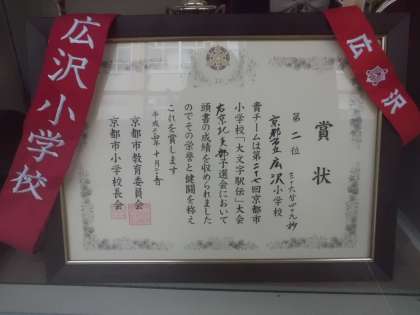 広沢小学校
広沢
賞状
第二位
京都市立広沢小学校
貴チームは第二十七回京都市
小学校「大文字駅伝」大会
右京北支部予選会において
頭書の成績を収められました
のでその栄誉と健闘を称え
これを賞します
京都市教育委員会
京都市小学校長会